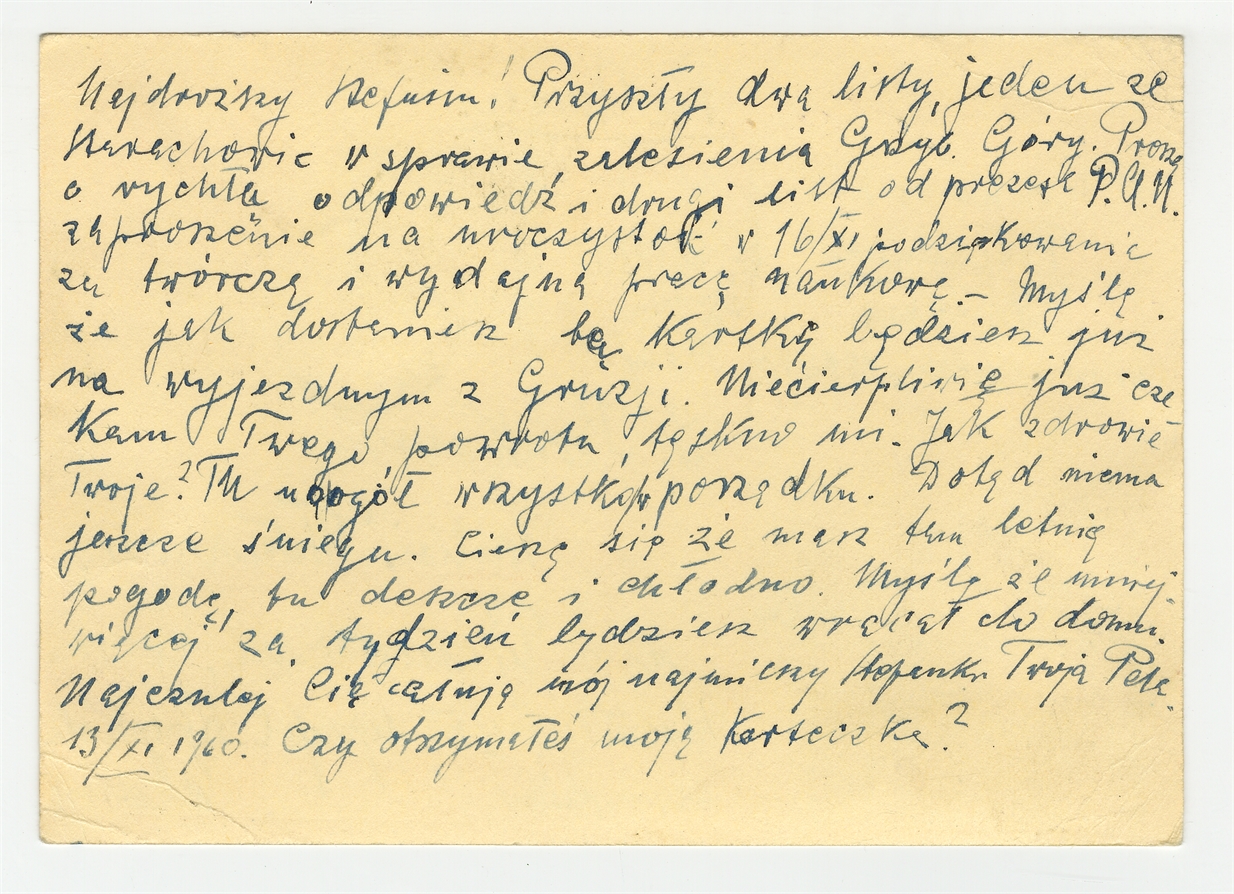 Najdroższy Stefusiu! Przyszły dwa listy, jeden ze
Starachowic w sprawie zalesienia Grzyb. Góry. Proszą
o rychłą odpowiedź i drugi list od prezesa P.A.N.
zaproszenie na uroczystość w 16/XI podziękowania
za twórczą i wydajną pracę naukową. – Myślę
że jak dostaniesz tą kartkę będziesz już
na wyjezdnym z Gruzji. Niecierpliwie już cze
kam Twego powrotu, tęskno mi. Jak zdrowie
Twoje? Tu naogół wszystko w porządku. Dotąd niema
jeszcze śniegu. Cieszę się że masz tam letnią
pogodę, tu deszcze i chłodno. Myślę że mniej-
więcej za tydzień będziesz wracał do domu.
Najczulej Cię całuję mój najmilszy Stefanku Twoja Pela.
13/XI 1960. Czy otrzymałeś moją karteczkę?